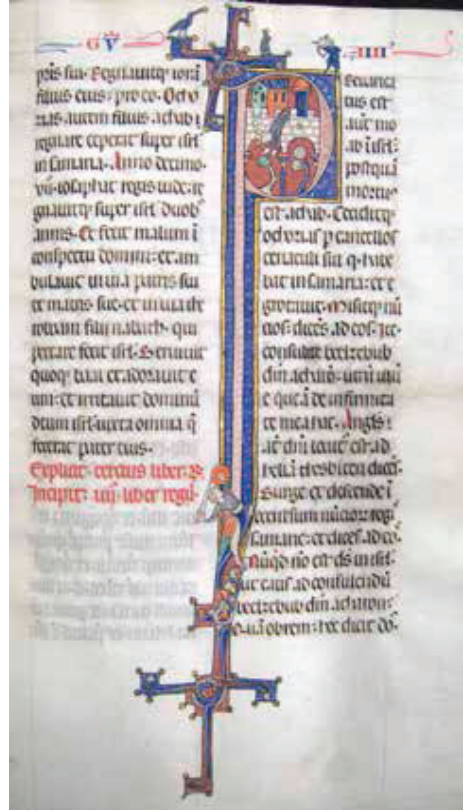 G V IIII
pris sui. Regnauitq; iorā
filius eius pro eo. Ocho
zias autem filius achab
regnare ceperat super isrl
in samaria. Anno decimo
regis iude. re
gnauitq; super isrl duob;
annis. Et fecit malum ī
conspectu domini: et am
bulauit in uia patris sui
et matris sue. et in uia ie
roboam filii nabath. qui
peccare fecit isrl. Seruiuit
quoq; baal et adorauit e
um: et irritauit dominū
deum isrl. iuxta omnia q̄
fecerat pater eius.
Explicit tercius liber.
Incipit iiij liber regū
Preuarica
tus est
aūt mo
ab ī isrl.
postquā
mortuus
est achab. Ceciditq;
ochozias p cancellos
cenaculi sui q; habe
bat in samaria: et e
grotauit. Misitq; nū
cios. dicēs ad eos. Ite
consulite beelzebub
utrū uiuē
e queā de infirmita
te mea hac. Angls
dn̄i est ad
heliā thesbiten dicēs.
Surge et descende ī
occursum nūcior; reg
samarie. et dices ad eos.
Nūqd nō est ds in isrl.
ut eatis ad consulendū
beelzebub
ob rem: hec dicit